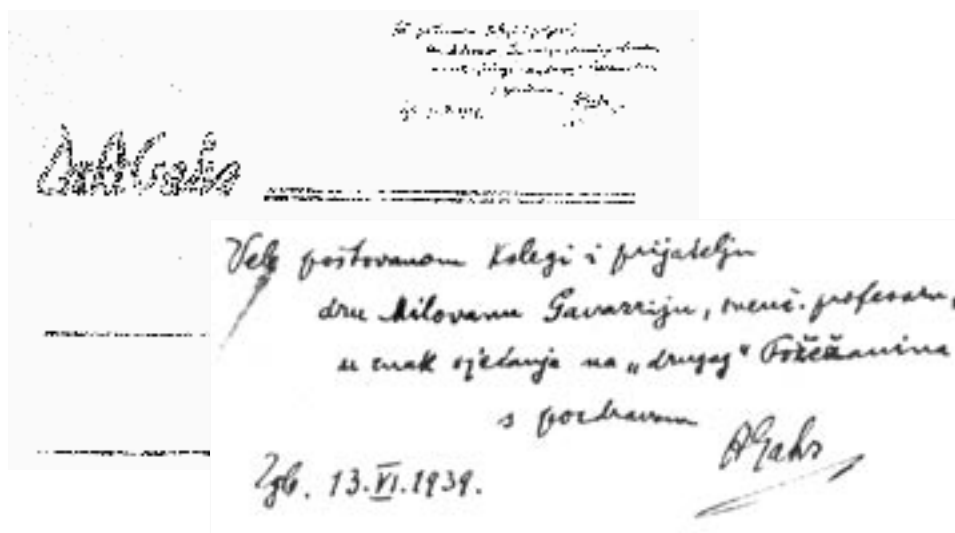 Dr A Gahs
Vele poštovanom kolegi i prijatelju
dru Milovanu Gavazziju, sveuč. profesoru,
u znak sjećanja na „drugog“ Požežanina
s pozdravom
AGahs
Zgb. 13.VI.1939.